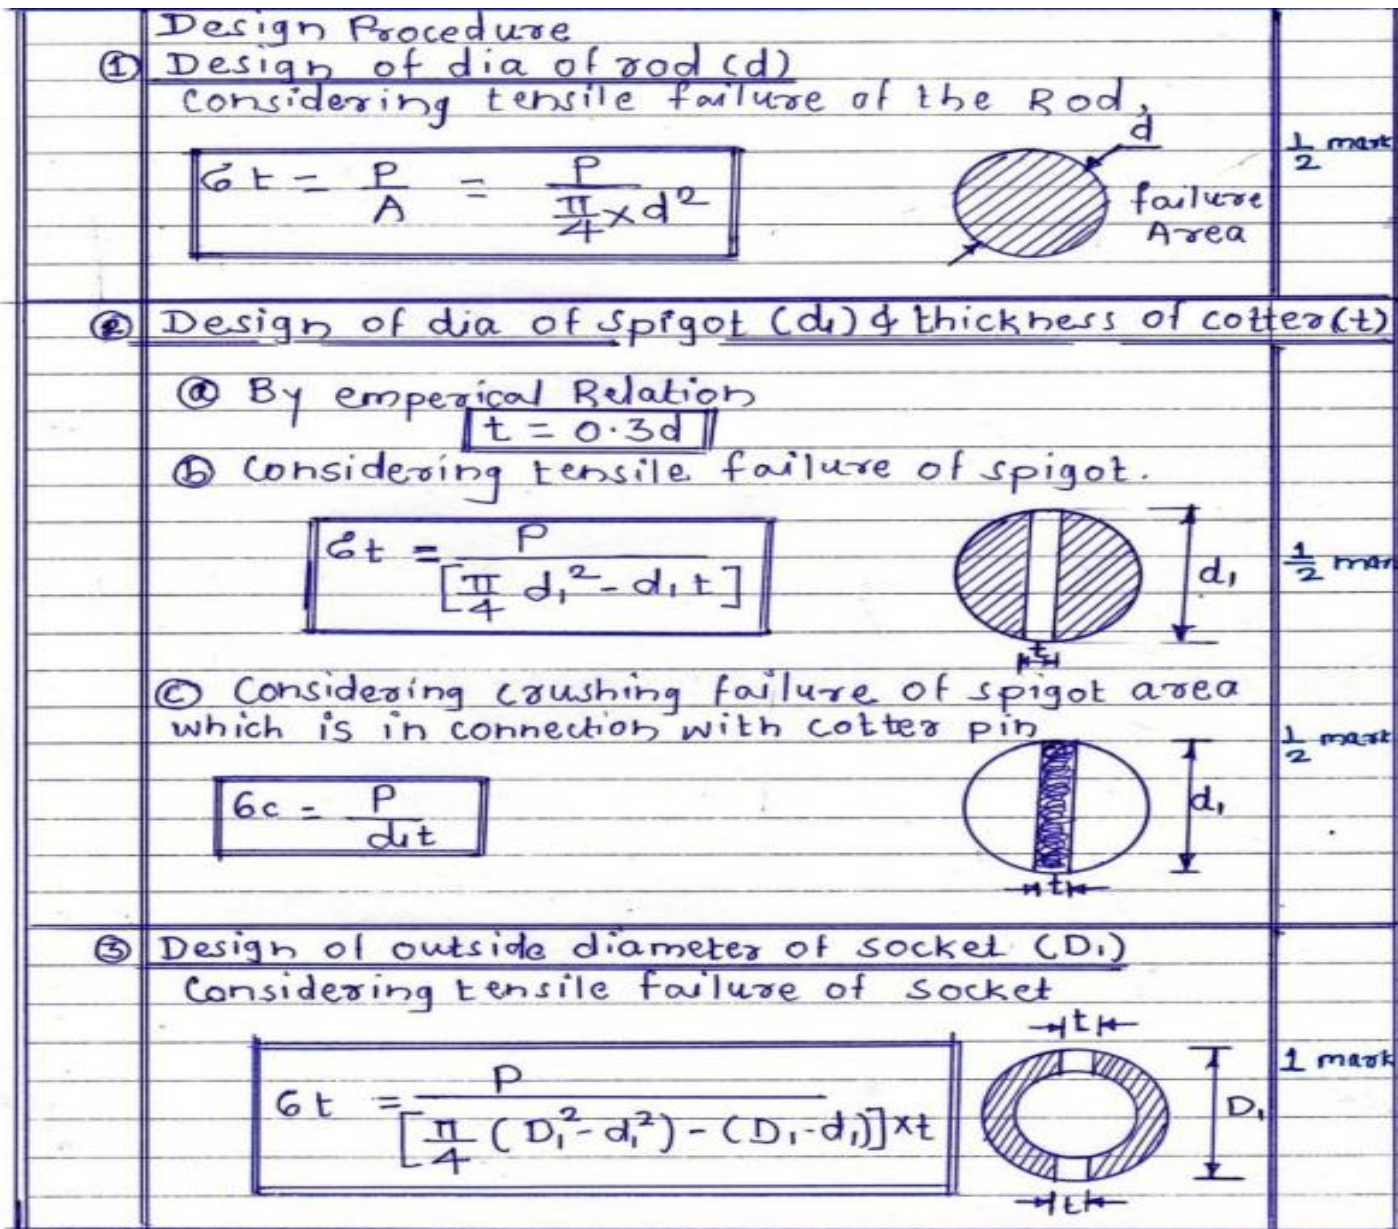 Design Procedure
① Design of dia of rod (d)
Considering tensile failure of the Rod,
σt = P/A = P/(π/4 × d²)
d
failure
Area
1/2 mark
② Design of dia of spigot (d₁) & thickness of cotter (t)
ⓐ By emperical Relation
t = 0.3d
ⓑ Considering tensile failure of spigot.
σt = P/[π/4 d₁² - d₁ t]
d₁
t
1/2 mar
ⓒ Considering crushing failure of spigot area
which is in connection with cotter pin
σc = P/d₁t
d₁
t
1/2 mark
③ Design of outside diameter of socket (D₁)
Considering tensile failure of socket
σt = P/[π/4 (D₁² - d₁²) - (D₁ - d₁)] × t
t
D₁
t
1 mark